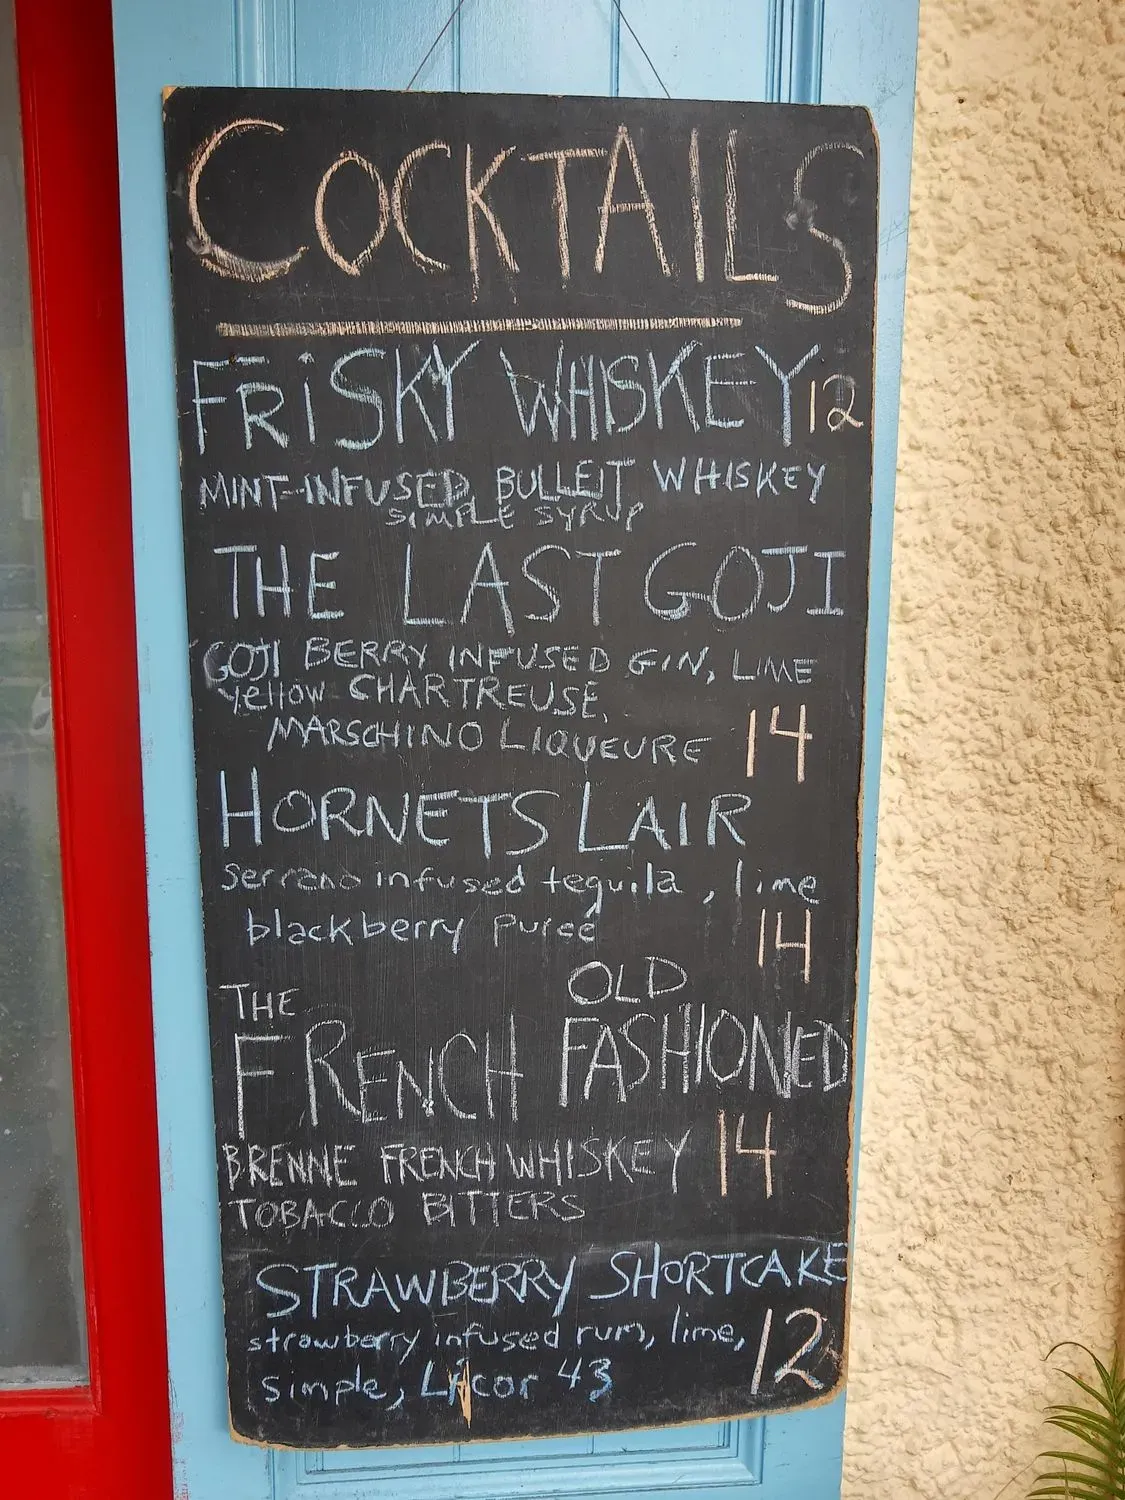 COCKTAILS
FRiSKY WHISKEY 12
MINT-INFUSED BULLEIT WHISKEY
SIMPLE SYRUP
THE LAST GOJI
GOJI BERRY INFUSED GIN, LIME
Yellow CHARTREUSE,
MARSCHINO LIQUEURE 14
HORNETS LAIR
serrano infused tequila, lime
blackberry puree 14
THE FRENCH OLD FASHIONED
BRENNE FRENCH WHISKEY 14
TOBACCO BITTERS
STRAWBERRY SHORTCAKE
strawberry infused rum, lime,
simple, Licor 43 12